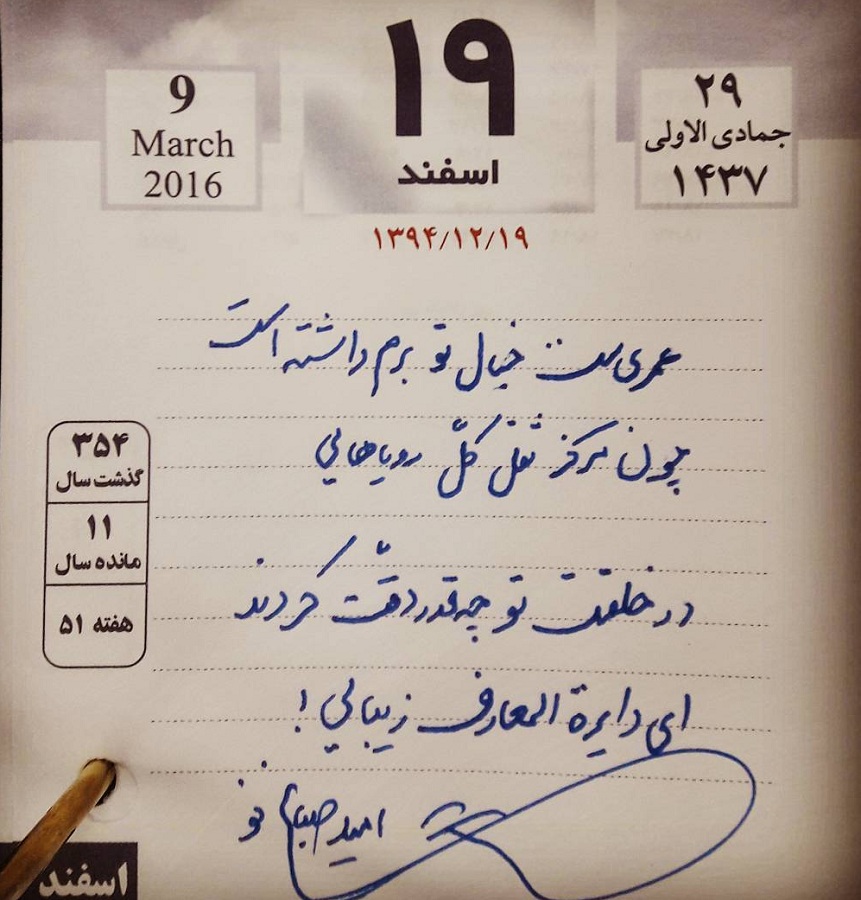 9
March
2016
۱۹
اسفند
۲۹
جمادی الاولی
۱۴۳۷
۱۳۹۴/۱۲/۱۹
عمری ست خیال تو برم داشته است
چون مرکز ثقل کلّ رویاهایی
در خلقت تو چه قدر دقّت کردند
ای دایرة المعارف زیبایی!
امید صباغ نو
۳۵۴
گذشت سال
۱۱
مانده سال
هفته ۵۱
اسفند